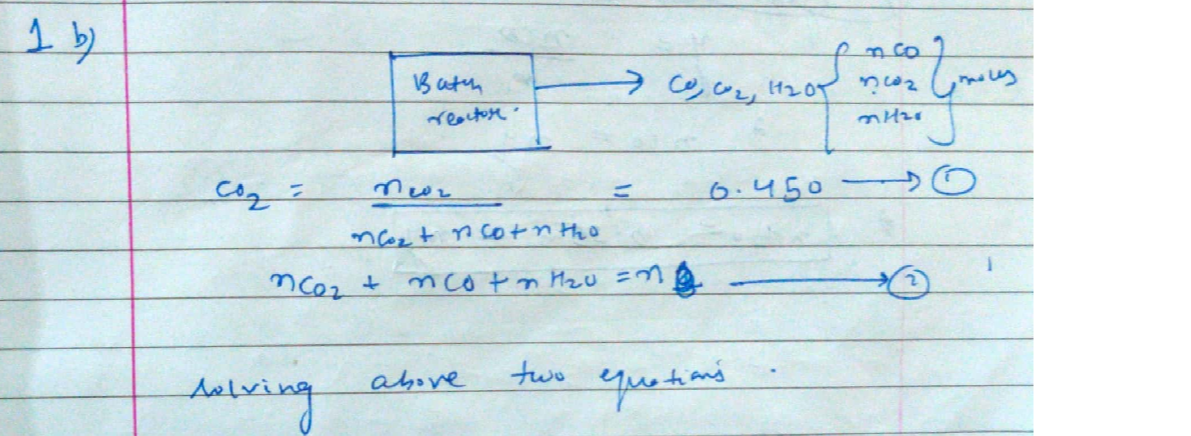 1 b)
Batch reactor. → CO, CO2, H2O { nCO nCO2 nH2O } moles
CO2 = nCO2 / nCO2 + nCO + nH2O = 0.450 → ①
nCO2 + nCO + nH2O = n → ②
solving above two equations.